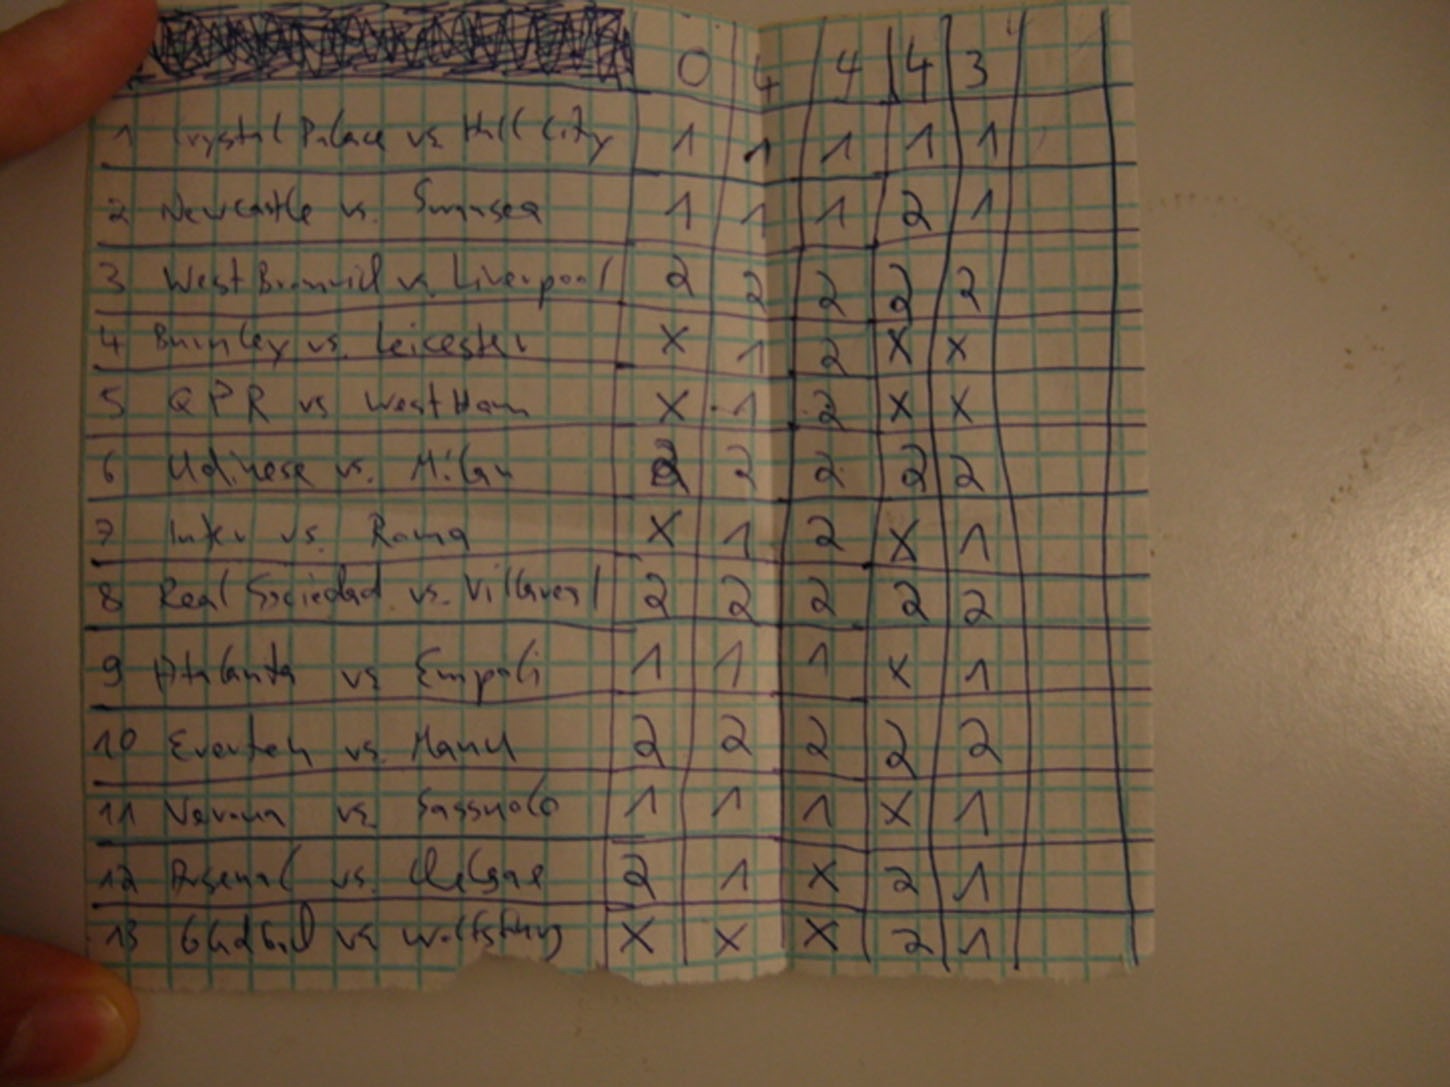 0 4 4 4 3
1 Crystal Palace vs Hull City 1 1 1 1 1
2 Newcastle vs. Swansea 1 1 1 2 1
3 West Bromwich vs. Liverpool 2 2 2 2 2
4 Burnley vs. Leicester X 1 2 X X
5 QPR vs West Ham X 1 2 X X
6 Udinese vs. Milan 2 2 2 2 2
7 Inter vs. Roma X 1 2 X 1
8 Real Sociedad vs. Villareal 2 2 2 2 2
9 Atalanta vs Empoli 1 1 1 X 1
10 Everton vs. ManU 2 2 2 2 2
11 Verona vs Sassuolo 1 1 1 X 1
12 Arsenal vs. Chelsea 2 1 X 2 1
13 Gladbach vs Wolfsburg X X X 2 1